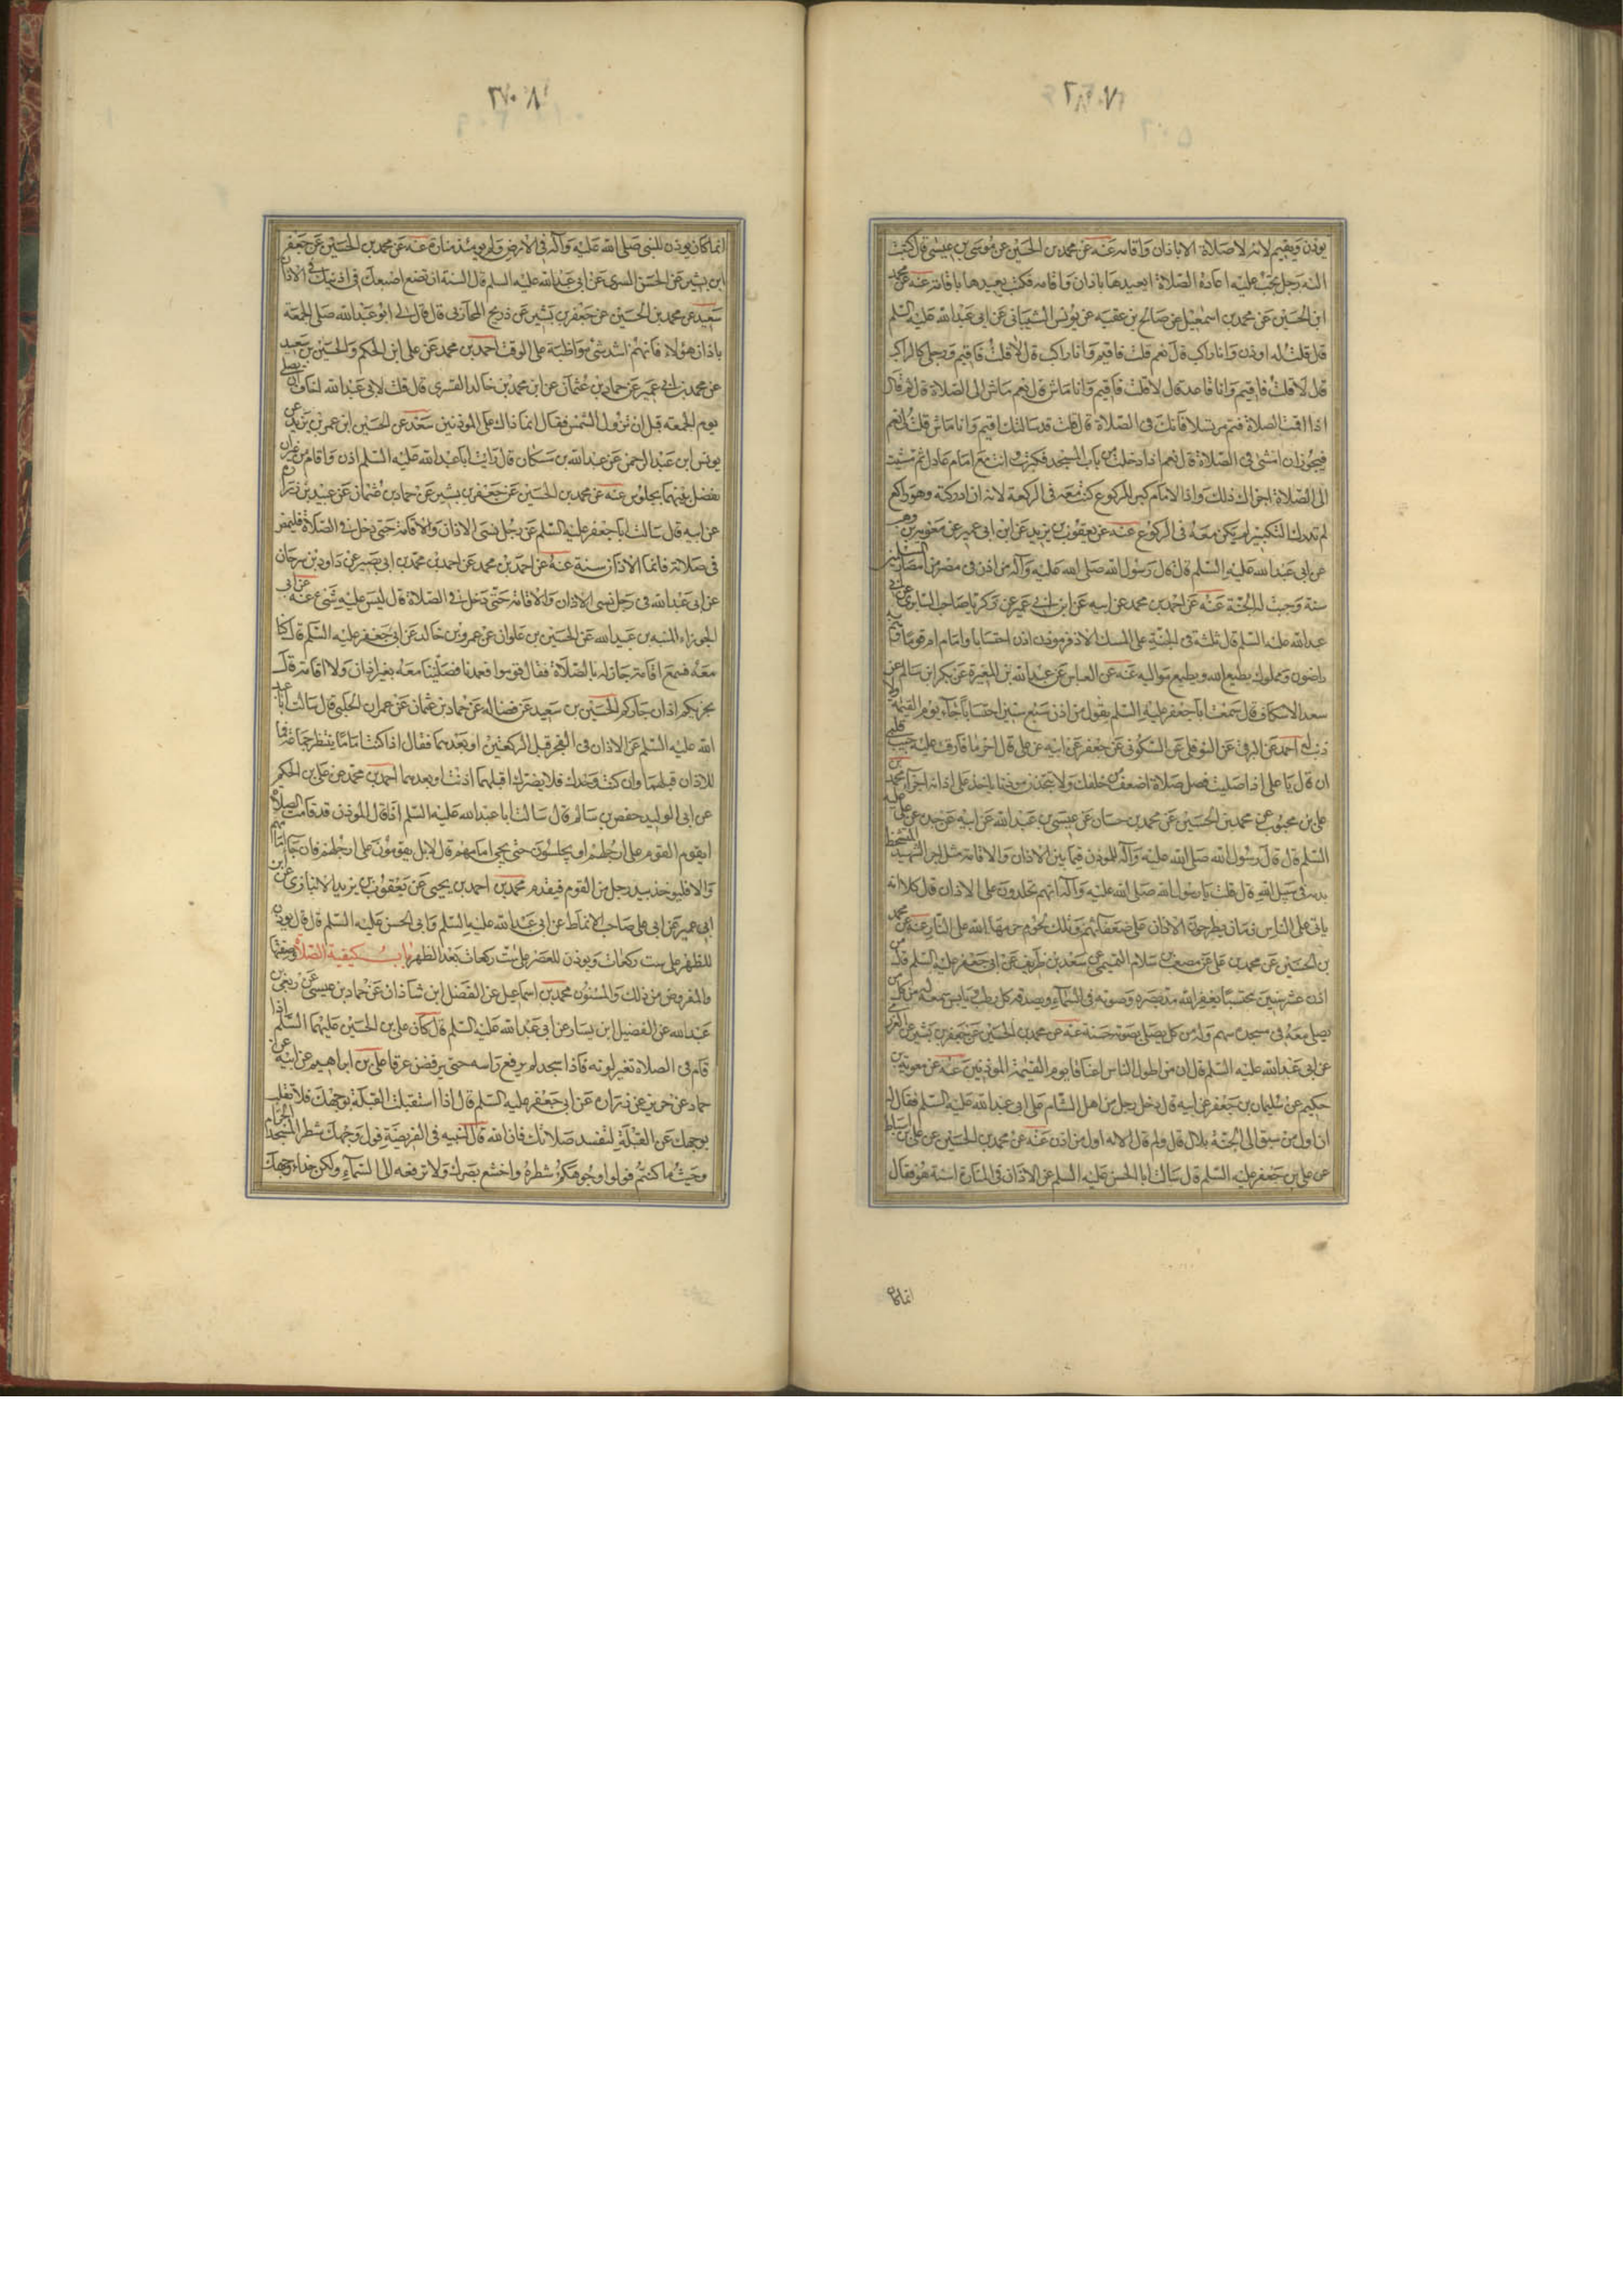 يوذن ويقيم لانه لا صلاة الا باذان واقامه عنه عن محمد بن الحسين عن موسى بن عيسى قال كتبت
اليه رجل تجب عليه اعادة الصلاة ايعيدها باذان واقامه فكتب يعيدها باقامة عنه عن محمد
ابن الحسين عن محمد بن اسمعيل عن صالح بن عقبه عن يونس الشيباني عن ابي عبد الله عليه السلم
قال قلت له اوذن وانا راكب قال نعم قلت فاقيم وانا راكب قال لا قلت فاقيم ورجلي كالراكب
قال لا قلت فاقيم وانا قاعد قال لا قلت فاقيم وانا ماش قال نعم ماش الى الصلاة قال ثم قال
اذا اقمت الصلاة فقم مترسلا فانك في الصلاة قال قلت قد سالتك اقيم وانا ماش قلت نعم
فيجوز ان امشي في الصلاة قال نعم اذا دخلت من باب المسجد فكبرت وانت مع امام عادل ثم مشيت
الى الصلاة اجزاك ذلك واذا الامام كبر للركوع كنت معه في الركعة لانه ان ادركته وهو راكع
لم تدرك التكبير لم يكن معه في الركوع عنه عن يعقوب بن يزيد عن ابن ابي عمير عن معوية بن وهب
عن ابي عبد الله عليه السلم قال قال رسول الله صلى الله عليه وآله من اذن في مصر من امصار المسلمين
سنة وجبت له الجنة عنه عن احمد بن محمد عن ابيه عن ابن ابي عمير عن زكريا صاحب السابري عن ابي
عبد الله عليه السلم قال ثلثة في الجنة على المسك الاذفر موذن اذن احتسابا وامام ام قوما وهم به
راضون ومملوك يطيع الله ويطيع مواليه عنه عن العباس عن عبد الله بن المغيرة عن بكر ابن سالم عن
سعد الاسكاف قال سمعت ابا جعفر عليه السلم يقول من اذن سبع سنين احتسابا جاء يوم القيمة ولا
ذنب له احمد عن البرقي عن النوفلي عن السكوني عن جعفر عن ابيه عن علي قال اخر ما فارقت عليه حبيب قلبي
ان قال يا علي اذا صليت فصل صلاة اضعف من خلفك ولا تتخذن موذنا ياخذ على اذانه اجرا محمد بن
علي بن محبوب عن محمد بن الحسين عن محمد بن حسان عن عيسى بن عبد الله عن ابيه عن جده عن علي عليه
السلم قال قال رسول الله صلى الله عليه وآله للموذن فيما بين الاذان والاقامة مثل اجر الشهيد المتشحط
بدمه في سبيل الله قال قلت يا رسول الله صلى الله عليه وآله انهم يجتلدون على الاذان قال كلا انه
ياتي على الناس زمان يطرحون الاذان على ضعفائهم وتلك لحوم حرمها الله على النار عنه عن محمد
بن الحسين عن محمد بن علي عن مصعب بن سلام التميمي عن سعد بن طريف عن ابي جعفر عليه السلم قال من
اذن عشر سنين محتسبا يغفر الله مد بصره وصوته في السماء ويصدقه كل رطب يابس سمعه وله من كل من
يصلي معه في مسجده سهم وله من كل يصلي بصوته حسنة عنه عن محمد بن الحسين عن جعفر بن بشير عن العزرمي
عن ابي عبد الله عليه السلم قال ان من اطول الناس اعناقا يوم القيمة الموذنين عنه عن معوية بن
حكيم عن سليمان بن جعفر عن ابيه قال دخل رجل من اهل الشام على ابي عبد الله عليه السلم فقال له
ان اول من سبق الى الجنة بلال قال ولم قال لانه اول من اذن عنه عن محمد بن الحسين عن علي بن اسباط
عن علي بن جعفر عليه السلم قال سالت ابا الحسن عليه السلم عن الاذان في المنارة اسنة هو فقال
انما كان
انما كان يوذن للنبي صلى الله عليه وآله في الارض ولم يومئذ منارة عنه عن محمد بن الحسين عن جعفر
ابن بشير عن الحسن السري عن ابي عبد الله عليه السلم قال السنة ان تضع اصبعك في اذنيك في الاذان
سعيد عن محمد بن الحسين عن جعفر بن بشير عن ذريح المحاربي قال قال لي ابو عبد الله صلى الجمعة
باذان هؤلاء فانهم اشد شي مواظبة على الوقت احمد بن محمد عن علي ابن الحكم والحسين بن سعيد
عن محمد بن ابي عمير عن حماد بن عثمان عن ابن محمد بن خالد القسري قال قلت لابي عبد الله اخاف ان يصلي
يوم الجمعه قبل ان تزول الشمس فقال انما ذاك على الموذنين سعد عن الحسين ابن عمر بن يزيد عن
يونس ابن عبد الرحمن عن عبد الله بن مسكان قال رايت ابا عبد الله عليه السلم اذن واقام من غير ان
يفصل بينهما بجلوس عنه عن محمد بن الحسين عن جعفر بن بشير عن حماد بن عثمان عن عبيد بن زرارة
عن ابيه قال سالت ابا جعفر عليه السلم عن رجل نسي الاذان والاقامة حتى دخل في الصلاة فليمض
في صلاته فانما الاذان سنة عنه عن احمد بن محمد عن احمد بن محمد بن ابي نصير عن داود بن سرحان
عن ابي عبد الله في رجل نسي الاذان والاقامة حتى دخل في الصلاة قال ليس عليه شيء عنه عن ابي
الجوزاء المنبه بن عبيد الله عن الحسين بن علوان عن عمرو بن خالد عن ابي جعفر عليه السلم قال كنا
معه فسمع اقامة جار له بالصلاة فقال قوموا فقمنا فصلينا معه بغير اذان ولا اقامة قال
يجزيكم اذان جاركم الحسين بن سعيد عن فضالة عن حماد بن عثمان عن عمران الحلبي قال سالت ابا عبد
الله عليه السلم عن الاذان في الفجر قبل الركعتين او بعدهما فقال اذا كنت اماما ينتظر جماعة فا
للاذان قبلهما وان كنت وحدك فلا يضرك اقبلهما اذنت او بعدهما احمد بن محمد عن علي بن الحكم
عن ابي الوليد حفص بن سالم قال سالت ابا عبد الله عليه السلم اذا قال الموذن قد قامت الصلاة
ايقوم القوم على ارجلهم او يجلسون حتى يجي امامهم قال لا بل يقومون على ارجلهم فان جاء امامهم
والا فليوخذ بيد رجل من القوم فيقدم محمد بن احمد بن يحيى عن يعقوب بن يزيد الانباري عن ابن
ابي عمير عن ابي علي صاحب الانماط عن ابي عبد الله عليه السلم وابي الحسن عليه السلم قال قال يوذن
للظهر على ست ركعات ويوذن للعصر على ست ركعات بعد الظهر باب كيفية الصلاة وصفتها
والمفروض من ذلك والمسنون محمد بن اسماعيل عن الفضل ابن شاذان عن حماد بن عيسى عن ربعي بن
عبد الله عن الفضيل ابن يسار عن ابي عبد الله عليه السلم قال كان علي بن الحسين عليهما السلم اذا
قام في الصلاة تغير لونه فاذا سجد لم يرفع راسه حتى يرفض عرقا علي بن ابراهيم عن ابيه عن
حماد عن حريز عن زرارة عن ابي جعفر عليه السلم قال اذا استقبلت القبلة بوجهك فلا تقلب
بوجهك عن القبلة لتفسد صلاتك فان الله قال لنبيه في الفريضة فول وجهك شطر المسجد الحرام
وحيث ما كنتم فولوا وجوهكم شطره واخشع بصرك ولا ترفعه الى السماء وليكن حذاء وجهك